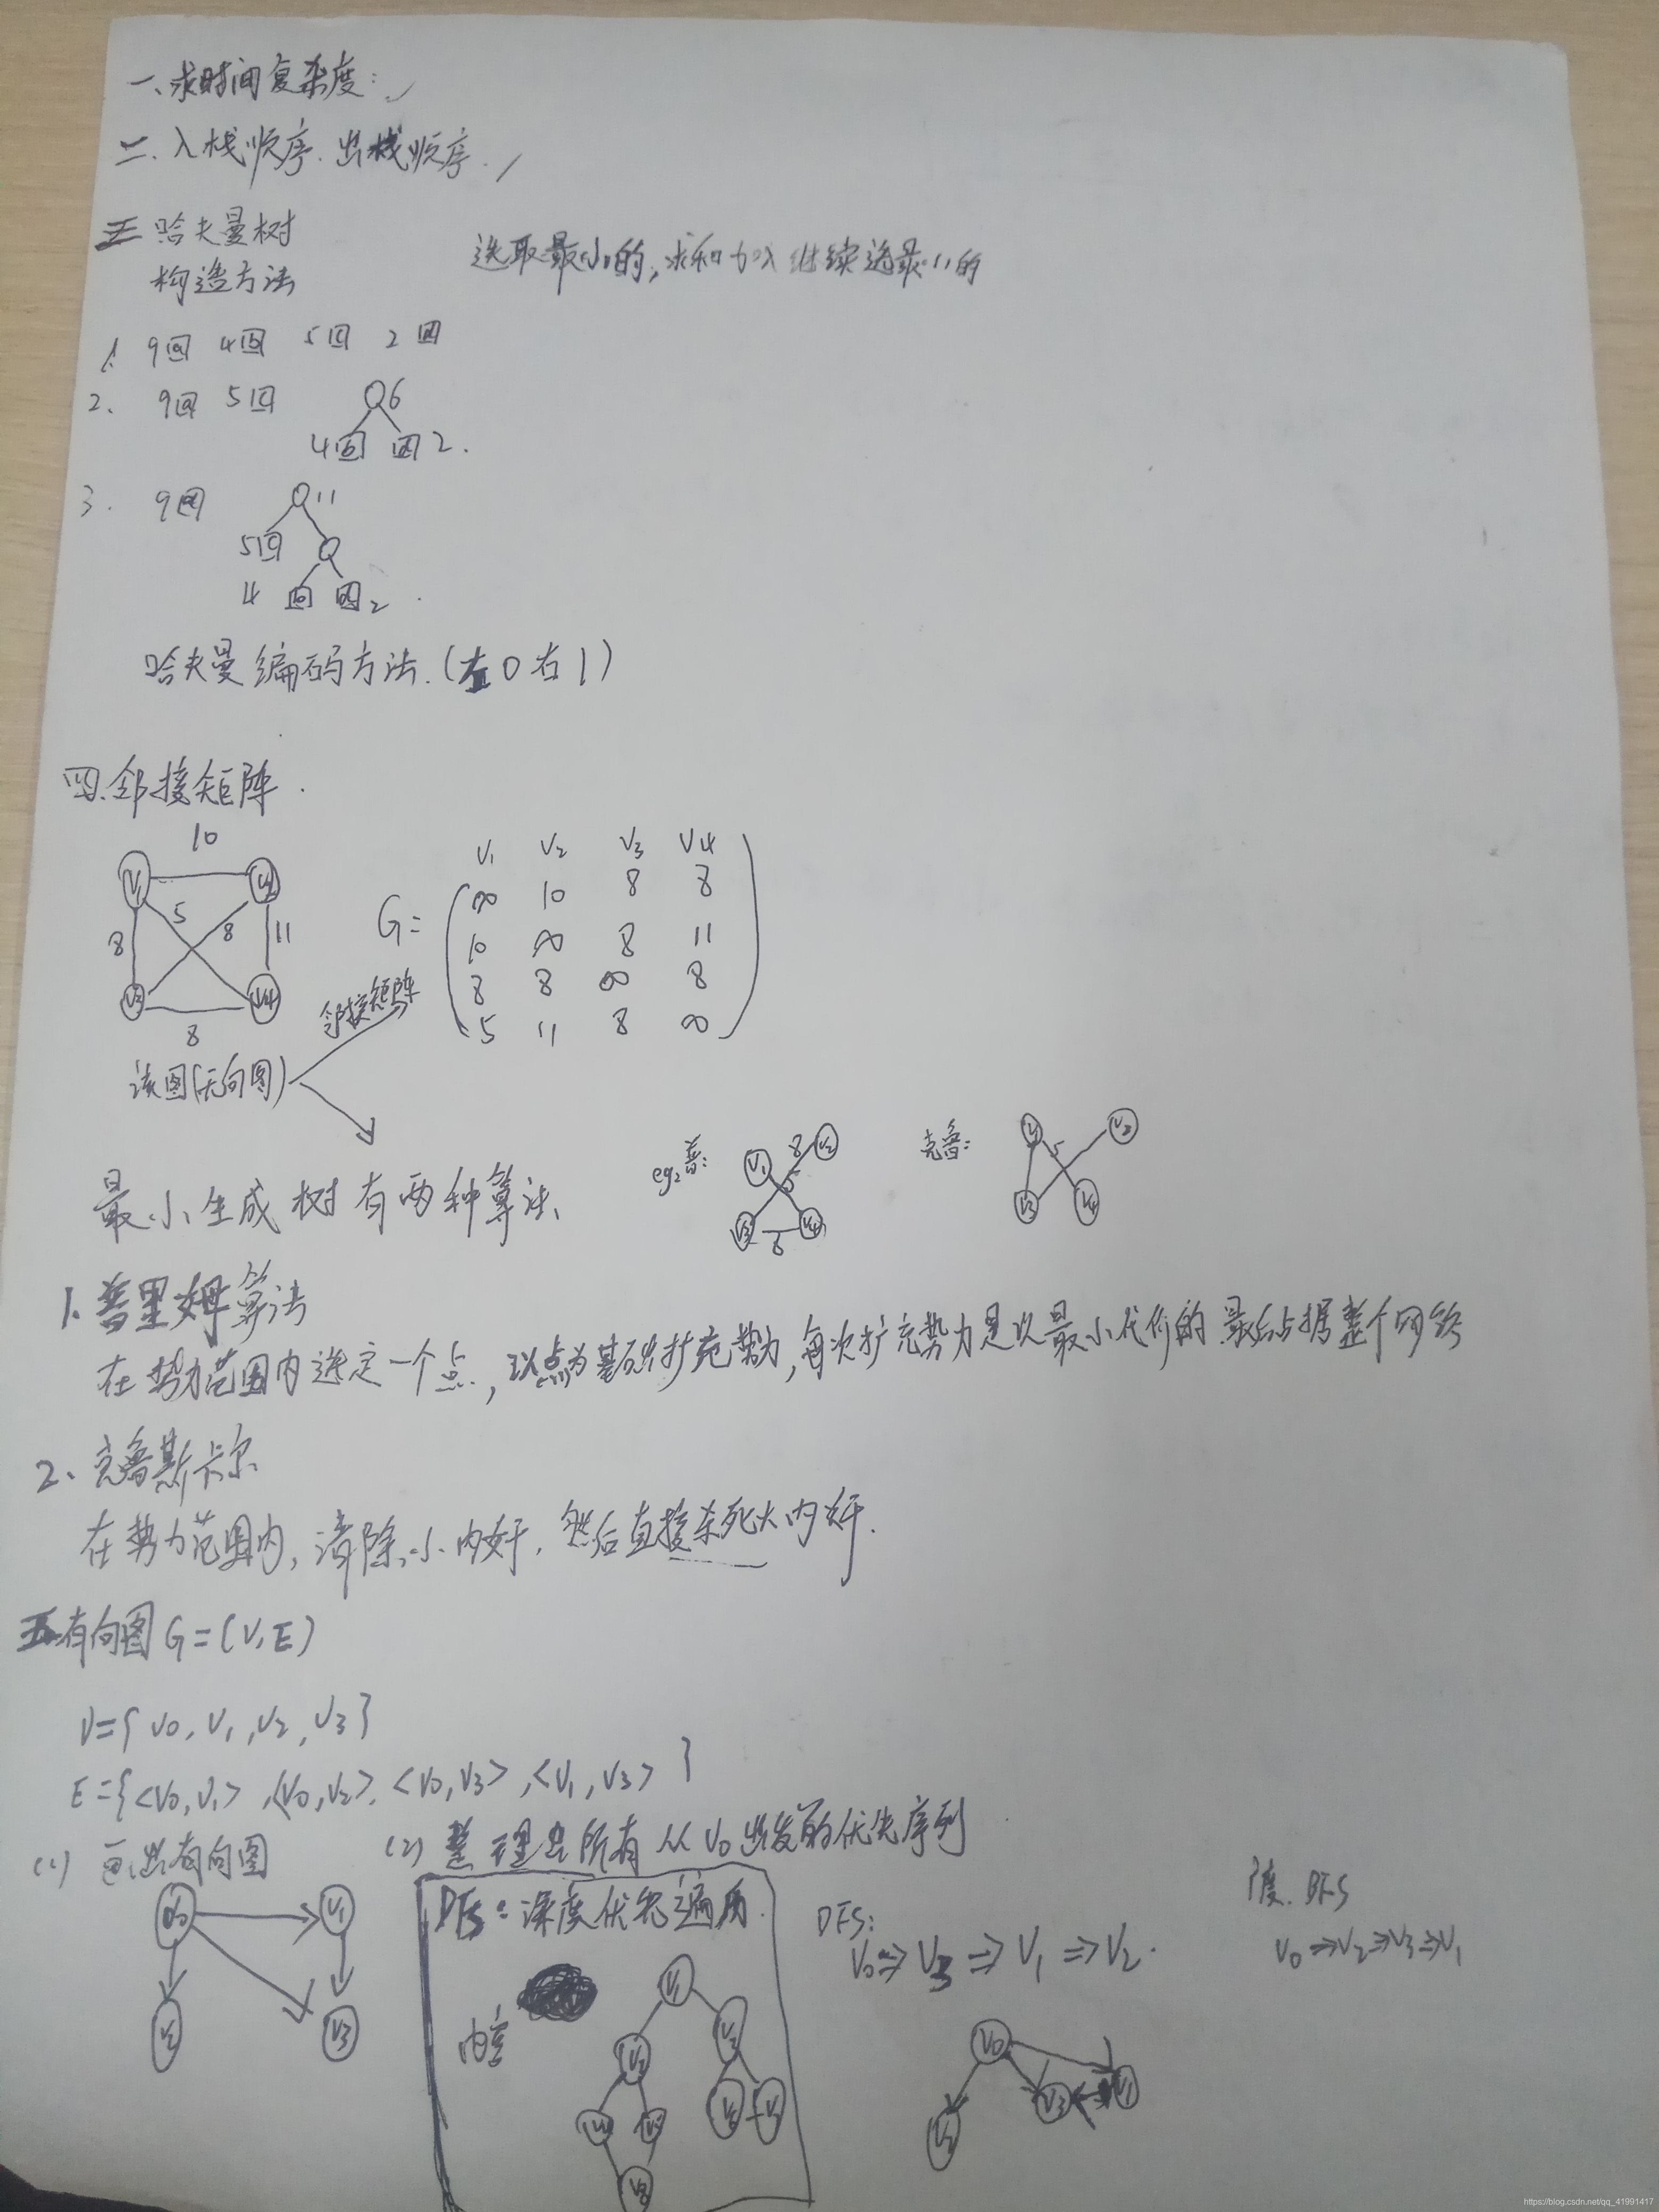 一、求时间复杂度:
二、入栈顺序、出栈顺序.
三 哈夫曼树
构造方法
选取最小的,求和加入继续选最小的
1. 9回 4回 5回 2回
2. 9回 5回
6
4回 回2.
3. 9回
11
5回
4 回 回2.
哈夫曼编码方法.(左0右1)
四.邻接矩阵.
10
V1 V2
5 8
8 11
V3 V4
8
V1 V2 V3 V4
G=
∞ 10 8 8
10 ∞ 8 11
8 8 ∞ 8
5 11 8 ∞
邻接矩阵
该图(无向图)
eg,普:
V1 8 V2
5
V3 8 V4
克鲁:
V1 V2
5
V3 V4
最小生成树有两种算法
1.普里姆算法
在势力范围内选定一个点,以点为基础扩充势力,每次扩充势力是以最小代价的 最后占据整个网络
2、克鲁斯卡尔
在势力范围内,清除小内奸,然后直接杀死大内奸.
五有向图G=(V,E)
V={V0,V1,V2,V3}
E={<V0,V1>,<V0,V2>,<V0,V3>,<V1,V3>}
(1) 画出有向图
(2) 整理出所有从V0出发的优先序列
V0 V1
V2 V3
DFS:深度优先遍历.
V1
V2 V3
V8
DFS:
V0⇒V3⇒V1⇒V2.
广度.BFS
V0⇒V2⇒V3⇒V1
V0
V2 V3 V1
https://blog.csdn.net/qq_41991417